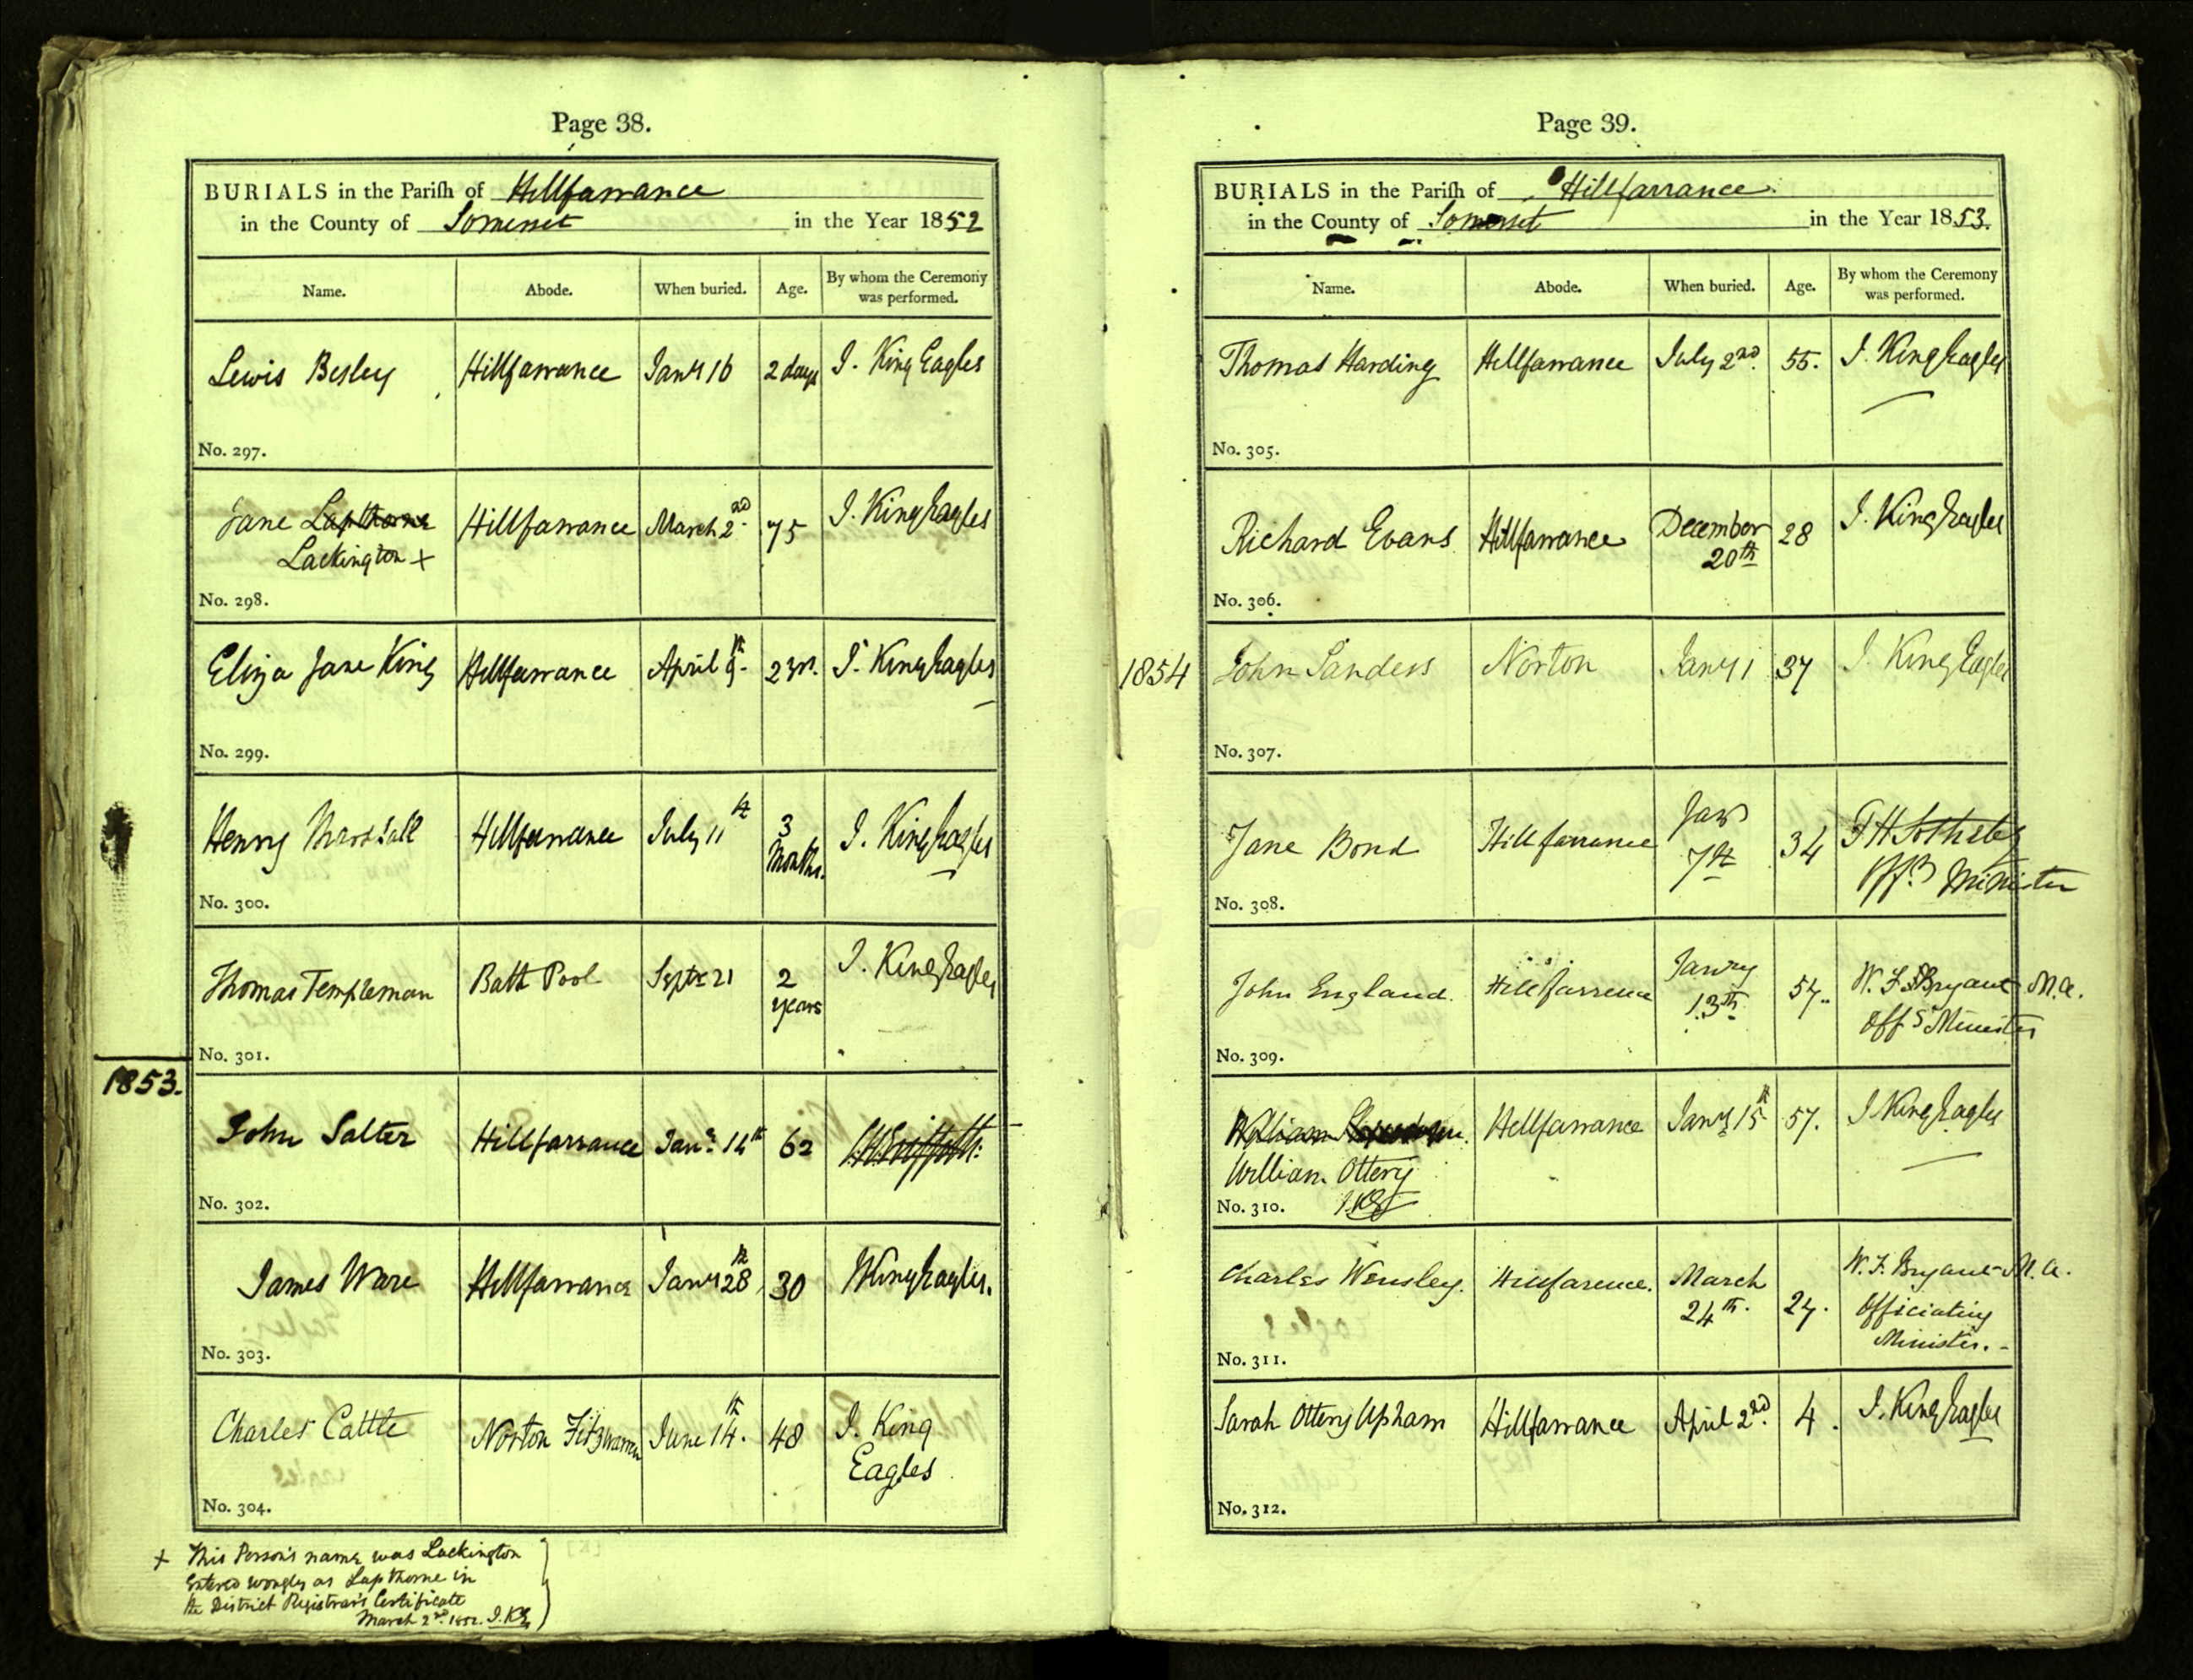 Page 38.
BURIALS in the Parish of Hillfarrance
in the County of Somerset in the Year 1852
Name. Abode. When buried. Age. By whom the Ceremony was performed.
Lewis Besley Hillfarrance Jany 16 2 days J. King Eagles
No. 297.
Jane Lapthorne Hillfarrance March 2nd 75 J. King Eagles
Lackington +
No. 298.
Eliza Jane King Hillfarrance April 9th J. King Eagles
No. 299.
Henry Marshall Hillfarrance July 11th 3 Months. J. King Eagles
No. 300.
Thomas Templeman Bath Pool Septr 21 2 years J. King Eagles
No. 301.
1853.
John Salter Hillfarrance Jany 14th 62
No. 302.
James Ware Hillfarrance Jany 28th 30 J King Eagles.
No. 303.
Charles Cattle Norton Fitzwarren June 14th. 48 J. King
Eagles
No. 304.
+ This Person's name was Lackington
entered wrongly as Lapthorne in
the District Registrar's Certificate
March 2nd 1852. J.K.E.
Page 39.
BURIALS in the Parish of Hillfarrance
in the County of Somerset in the Year 1853.
Name. Abode. When buried. Age. By whom the Ceremony was performed.
Thomas Harding Hillfarrance July 2nd. 55. J. King Eagles
No. 305.
Richard Evans Hillfarrance December 20th 28 J. King Eagles
No. 306.
1854 John Sanders Norton Jany 1 37 J. King Eagles
No. 307.
Jane Bond Hillfarrance Jany 7th 34 Minister
No. 308.
John England. Hillfarrence Janry 13th 57. W. F. Bryant M.A.
Offg Minister
No. 309.
William Hillfarrance Jany 15th 57. J King Eagles
William Ottery
No. 310. JKE
Charles Wensley. Hillfarence. March 24th. 27. W. F. Bryant M.A.
Officiating
Minister.
No. 311.
Sarah Ottery Upham Hillfarrance April 2nd. 4. J. King Eagles
No. 312.